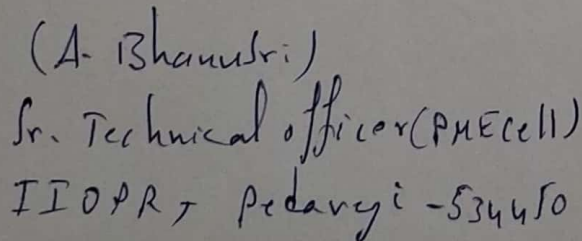 (A. Bhanusri)
Sr. Technical officer(PMECell)
IIOPR, Pedavegi -534450